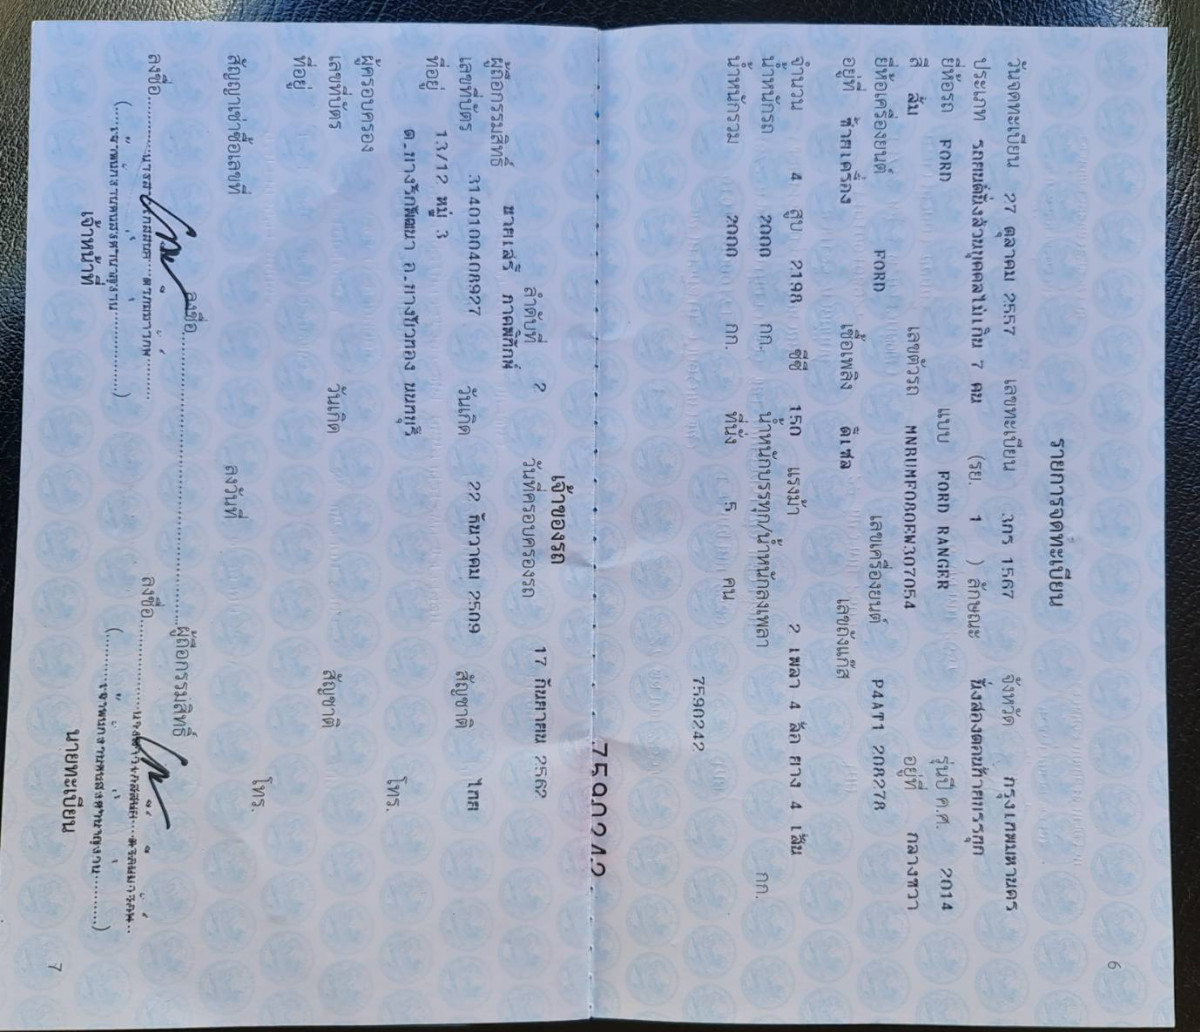 รายการจดทะเบียน
วันจดทะเบียน 27 ตุลาคม 2557 เลขทะเบียน 3กร 1567 จังหวัด กรุงเทพมหานคร
ประเภท รถยนต์นั่งส่วนบุคคลไม่เกิน 7 คน (รย. 1 ) ลักษณะ นั่งสองตอนท้ายบรรทุก
ยี่ห้อรถ FORD แบบ FORD RANGER รุ่นปี ค.ศ. 2014
สี ส้ม เลขตัวรถ MNBUMF080EW307054 อยู่ที่ กลางขวา
ยี่ห้อเครื่องยนต์ FORD เลขเครื่องยนต์ P4AT1 208278
อยู่ที่ ซ้ายเครื่อง เชื้อเพลิง ดีเซล เลขถังแก๊ส
จำนวน 4 สูบ 2198 ซีซี 150 แรงม้า 2 เพลา 4 ล้อ ยาง 4 เส้น
น้ำหนักรถ 2000 กก. น้ำหนักบรรทุก/น้ำหนักลงเพลา กก.
น้ำหนักรวม 2000 กก. ที่นั่ง 5 คน
7590242
6
7590242
เจ้าของรถ
ลำดับที่ 2 วันที่ครอบครองรถ 17 กันยายน 2562
ผู้ถือกรรมสิทธิ์ นายเสรี ภาคพิทักษ์
เลขที่บัตร 3140100408927 วันเกิด 22 ธันวาคม 2509 สัญชาติ ไทย
ที่อยู่ 13/12 หมู่ 3
ต.บางรักพัฒนา อ.บางบัวทอง นนทบุรี โทร.
ผู้ครอบครอง
เลขที่บัตร วันเกิด สัญชาติ
ที่อยู่
โทร.
สัญญาเช่าซื้อเลขที่ ลงวันที่
ลงชื่อ ผู้ถือกรรมสิทธิ์
ลงชื่อ ลงชื่อ
เจ้าหน้าที่ นายทะเบียน
7